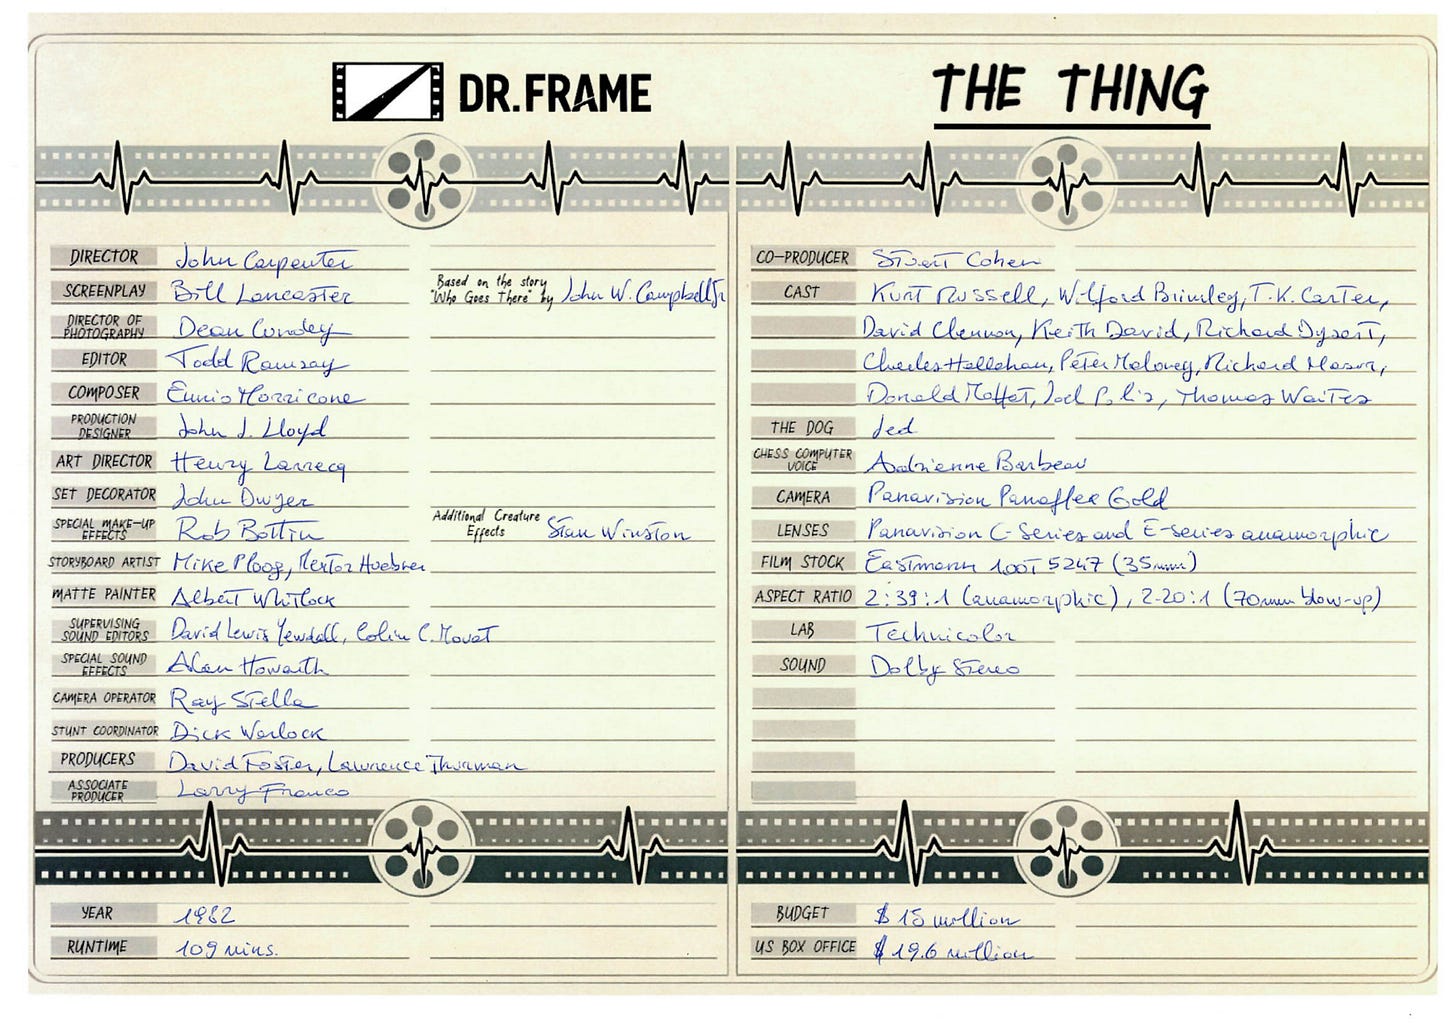 DR.FRAME
THE THING
DIRECTOR John Carpenter
SCREENPLAY Bill Lancaster Based on the story "Who Goes There" by John W. Campbell Jr
DIRECTOR OF PHOTOGRAPHY Dean Cundey
EDITOR Todd Ramsay
COMPOSER Ennio Morricone
PRODUCTION DESIGNER John J. Lloyd
ART DIRECTOR Henry Larrecq
SET DECORATOR John Dwyer
SPECIAL MAKE-UP EFFECTS Rob Bottin Additional Creature Effects Stan Winston
STORYBOARD ARTIST Mike Ploog, Mentor Huebner
MATTE PAINTER Albert Whitlock
SUPERVISING SOUND EDITORS David Lewis Yewdall, Colin C. Mouat
SPECIAL SOUND EFFECTS Alan Howarth
CAMERA OPERATOR Ray Stella
STUNT COORDINATOR Dick Warlock
PRODUCERS David Foster, Lawrence Thurman
ASSOCIATE PRODUCER Larry Franco
YEAR 1982
RUNTIME 109 mins.
CO-PRODUCER Stuart Cohen
CAST Kurt Russell, Wilford Brimley, T.K. Carter,
David Clennon, Keith David, Richard Dysart,
Charles Hallahan, Peter Maloney, Richard Masur,
Donald Moffat, Joel Polis, Thomas Waites
THE DOG Jed
CHESS COMPUTER VOICE Adrienne Barbeau
CAMERA Panavision Panaflex Gold
LENSES Panavision C-Series and E-series anamorphic
FILM STOCK Eastmann 100T 5247 (35mm)
ASPECT RATIO 2:39:1 (anamorphic), 2.20:1 (70mm blow-up)
LAB Technicolor
SOUND Dolby Stereo
BUDGET $15 million
US BOX OFFICE $19.6 million